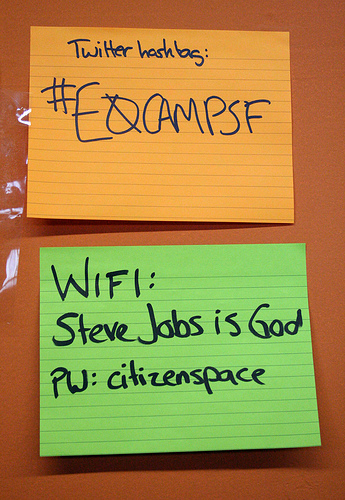 Twitter hashtag:
#EQCAMPSF
WIFI:
Steve Jobs is God
PW: citizenspace